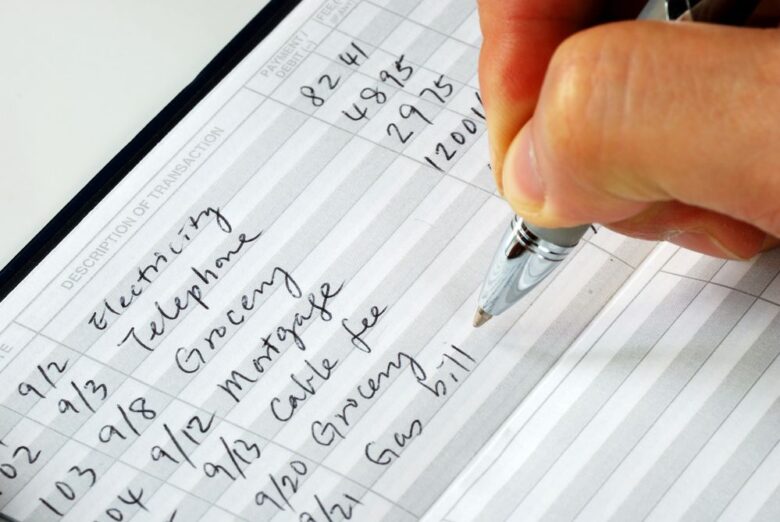 TE DESCRIPTION OF TRANSACTION PAYMENT / DEBIT (-)
9/2 Electricity 82 41
02 9/3 Telephone 48 95
103 9/8 Grocery 29 75
104 9/12 Mortgage 1200
9/13 Cable fee
9/20 Grocery
9/21 Gas bill